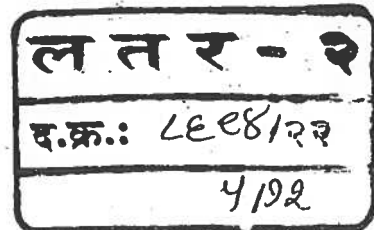 ल त र - २
द.क्र.: ८६९४/२३
५/१२